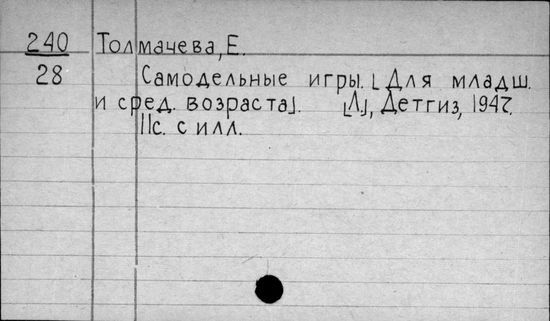 240 Толмачева, Е.
28 Самодельные игры. [Для младш.
и сред. возраста]. [Л.], Детгиз, 1947.
11с. с илл.